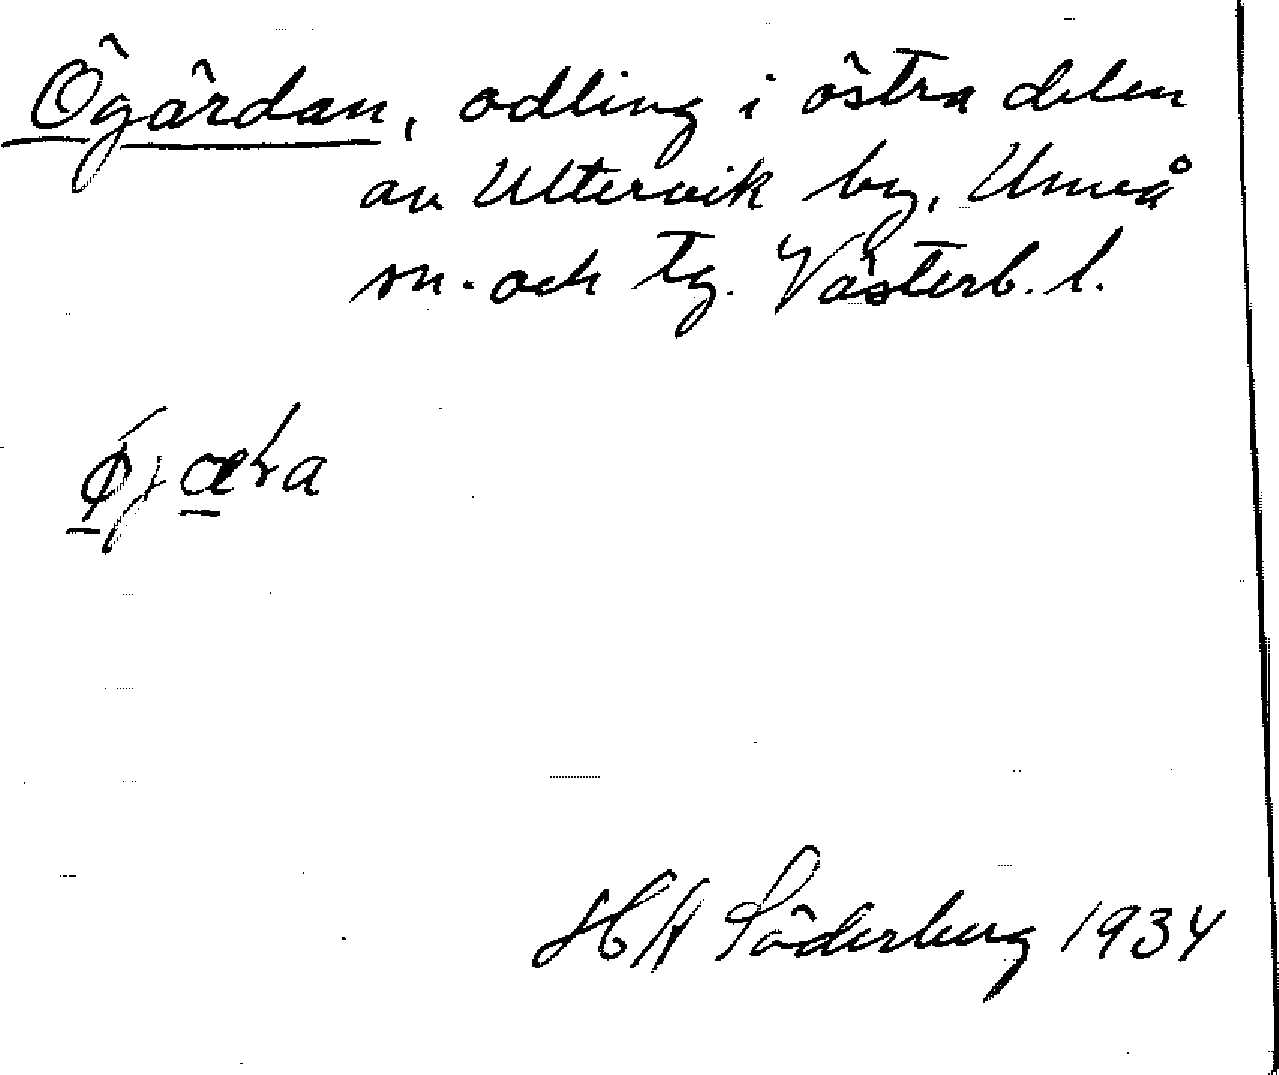 Ögärdan, odling i östra delen
av Ultervik by, Umeå
sn. och tg. Västerb. l.
H A Söderberg 1934